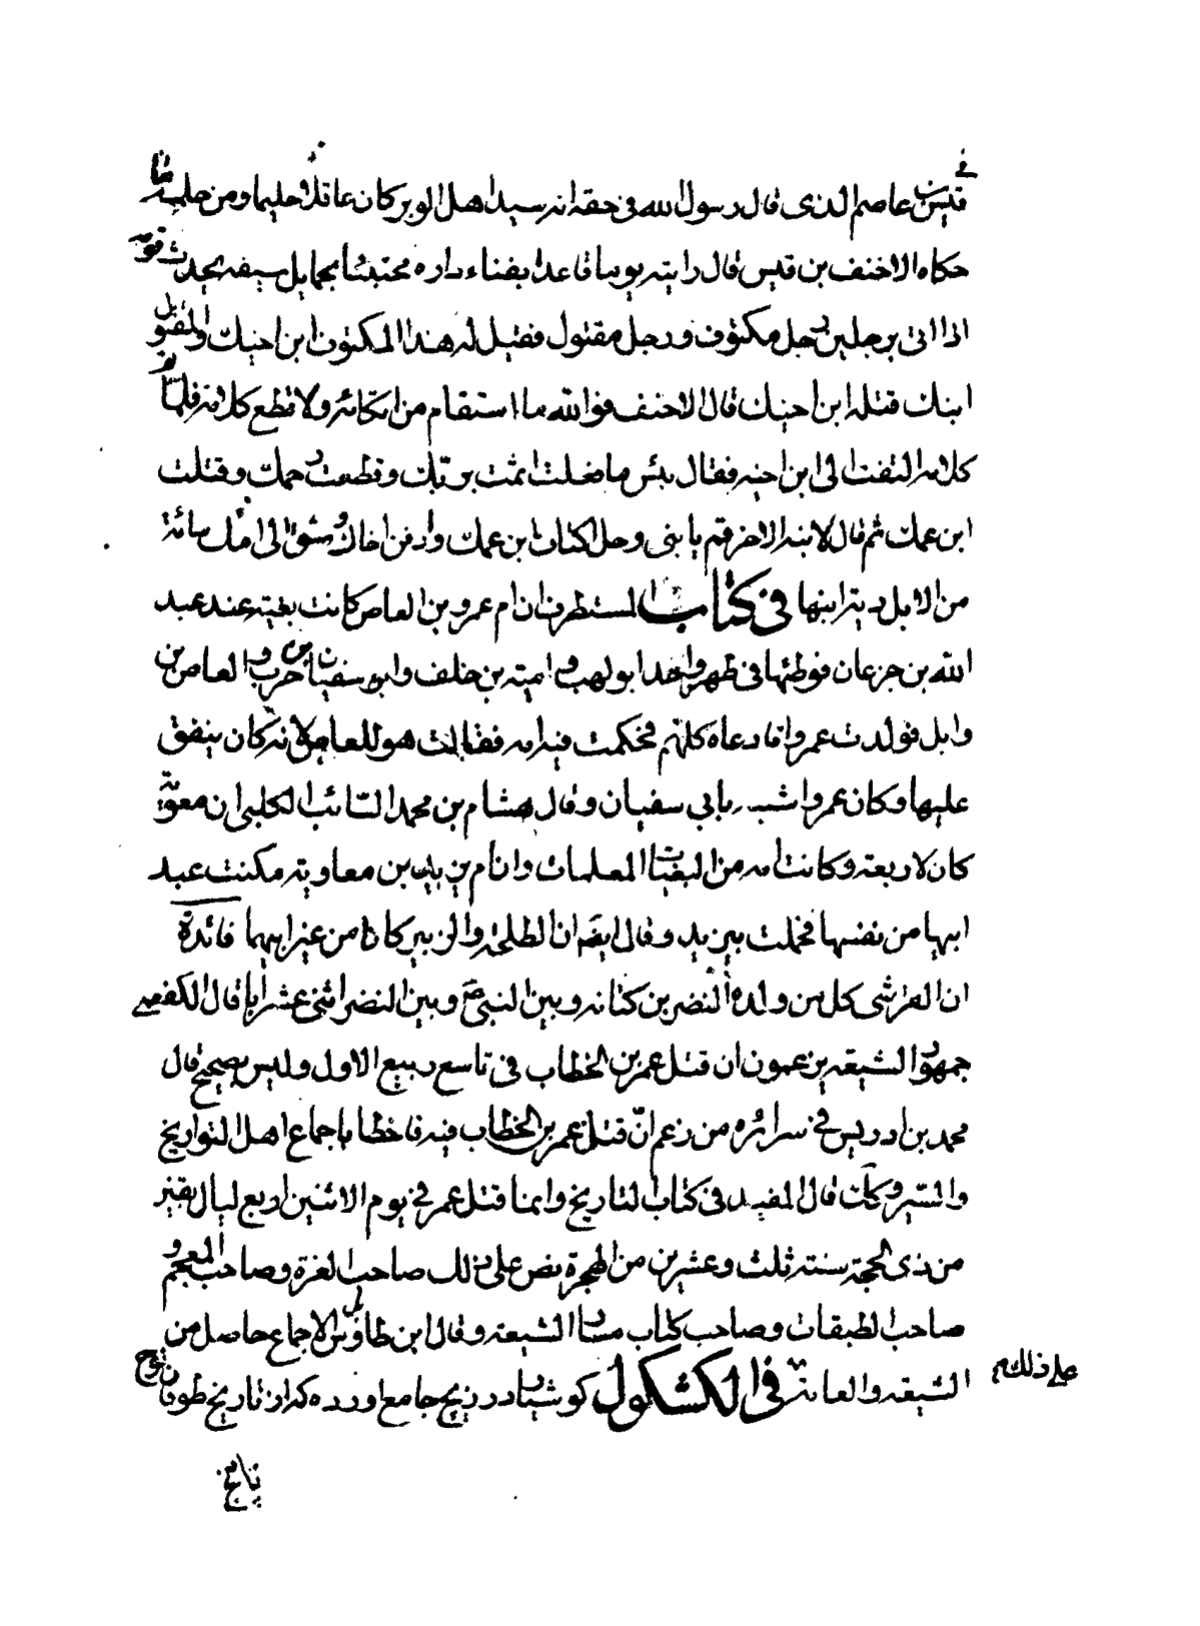 قيس بن عاصم الذى قال رسول الله فى حقه انه سيد اهل الوبر كان عاقلا حليما ومن حلمه ما
حكاه الاحنف بن قيس قال رايته يوما قاعدا بفناء داره محتبئا بحمايل سيفه يحدث قومه
اذا اتى برجلين رجل مكتوف ورجل مقتول فقيل له هذا المكتوف ابن اخيك والمقتول
ابنك قتله ابن اخيك قال الاحنف فوالله ما استقام من اتكائه ولا قطع كلامه فلما تم
كلامه التفت الى ابن اخيه فقال بئس ما فعلت اثمت بربك وقطعت رحمك وقتلت
ابن عمك ثم قال لابنه الاخر قم يا بنى وحل اكتاف ابن عمك وادفن اخاك وسق الى امك مائة
من الابل دية ابنها فى كتاب المستطرف ان ام عمرو بن العاص كانت بغية عند عبد
الله بن جزعان فوطئها فى طهر واحد ابو لهب و امية بن خلف وابو سفيان بن حرب و العاص بن
وايل فولدت عمروا فادعاه كلهم فحكمت فيه امه فقالت هو للعاص لانه كان ينفق
عليها وكان عمروا شبه بابي سفيان وقال هشام بن محمد السائب الكلبى ان معوية
كان لاربعة وكانت امه من البغيات المعلمات وان ام يزيد بن معاوية مكنت عبد
ابيها من نفسها فحملت بيزيد وقال ايضا ان الطلحة والزبير كانا من غير ابيهما فائدة
ان القرشى كل من ولده النضر بن كنانه وبين النبى ص وبين النضر اثنى عشر ابا قال الكفعمى
جمهور الشيعه يزعمون ان قتل عمر بن الخطاب فى تاسع ربيع الاول وليس بصحيح قال
محمد بن ادريس فى سرائره من زعم ان قتل عمر بن الخطاب فيه فاخطا باجماع اهل التواريخ
والسير وكك قال المفيد فى كتاب التاريخ وانما قتل عمر فى يوم الاثنين اربع ليال بقين
من ذى الحجة سنة ثلث وعشرين من الهجرة نص على ذلك صاحب الغرة وصاحب المعجم و
صاحب الطبقات وصاحب كتاب مسار الشيعه وقال ابن طاوس بل الاجماع حاصل من
الشيعه والعامة على ذلك فى الكشكول كوشيار در زيج جامع اورده كه از تاريخ طوفان نوح
تاريخ